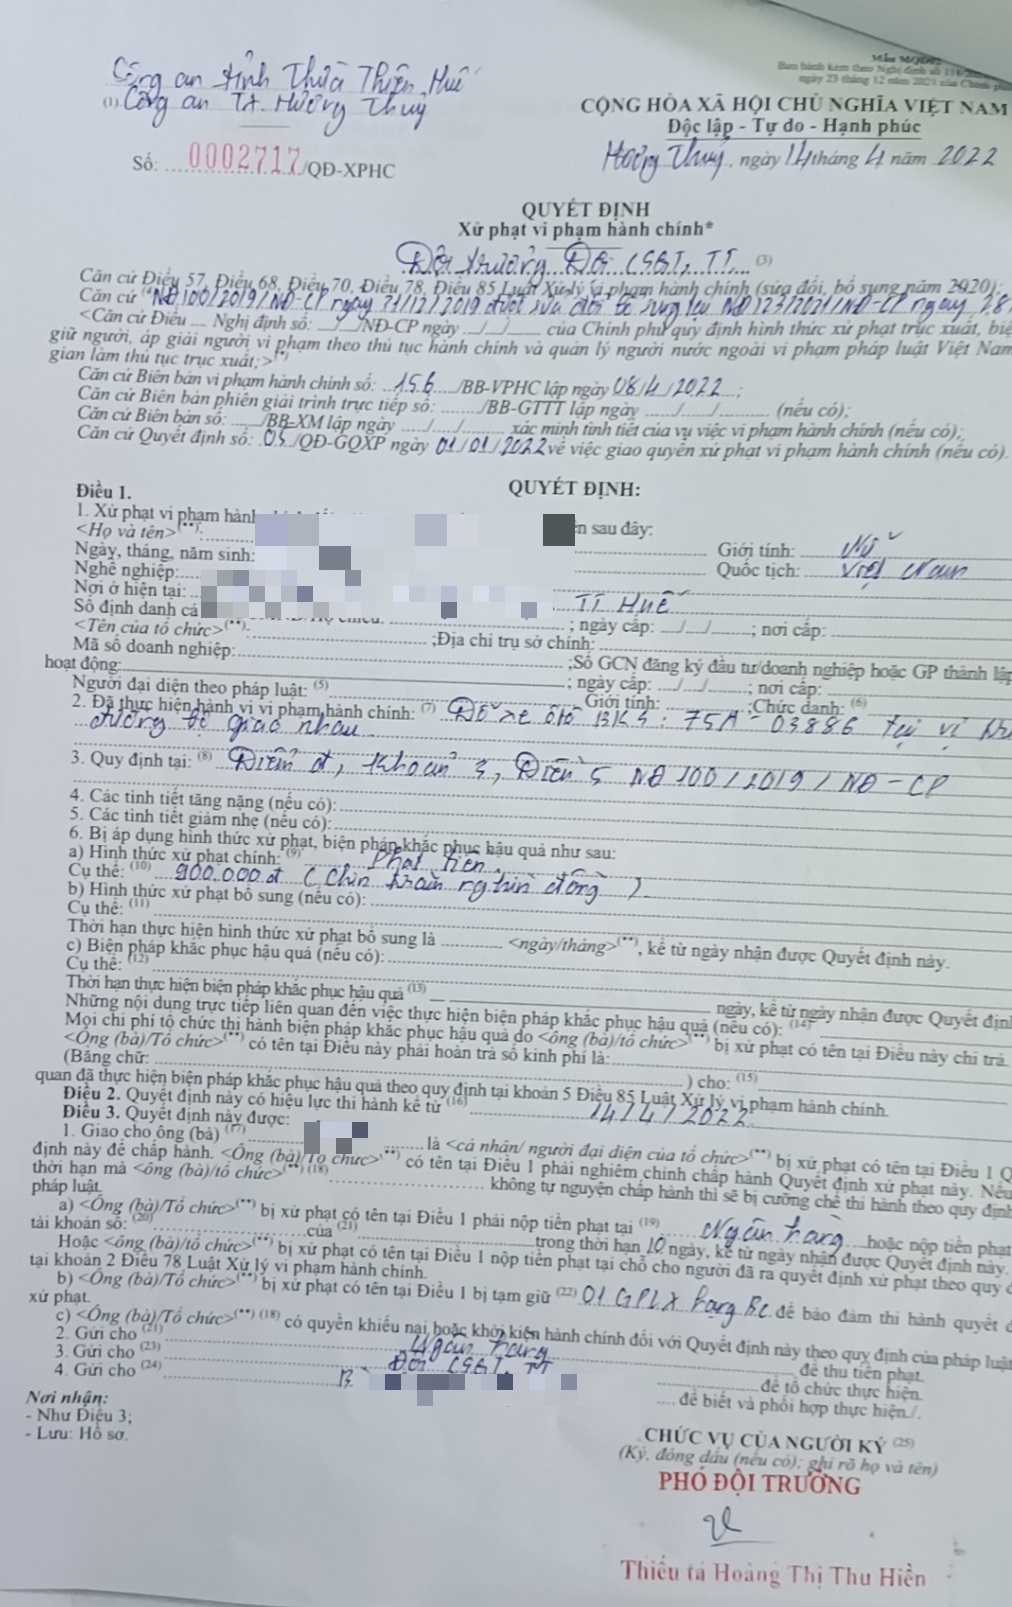 Mẫu MQĐ02
Ban hành kèm theo Nghị định số 118/2021
ngày 23 tháng 12 năm 2021 của Chính phủ
Công an tỉnh Thừa Thiên Huế
(1) Công an TX. Hương Thuỷ
CỘNG HÒA XÃ HỘI CHỦ NGHĨA VIỆT NAM
Độc lập - Tự do - Hạnh phúc
Số: 0002717/QĐ-XPHC
Hương Thuỷ, ngày 14 tháng 4 năm 2022
QUYẾT ĐỊNH
Xử phạt vi phạm hành chính*
Đội trưởng Đội CSGT, TT (3)
Căn cứ Điều 57, Điều 68, Điều 70, Điều 78, Điều 85 Luật Xử lý vi phạm hành chính (sửa đổi, bổ sung năm 2020);
Căn cứ (4) NĐ 100/2019/NĐ-CP ngày 31/12/2019 được sửa đổi bổ sung tại NĐ 123/2021/NĐ-CP ngày 28
<Căn cứ Điều ... Nghị định số: .../.../NĐ-CP ngày .../.../... của Chính phủ quy định hình thức xử phạt trục xuất, biệ
giữ người, áp giải người vi phạm theo thủ tục hành chính và quản lý người nước ngoài vi phạm pháp luật Việt Nam
gian làm thủ tục trục xuất;>(*)
Căn cứ Biên bản vi phạm hành chính số: 156/BB-VPHC lập ngày 08/4/2022;
Căn cứ Biên bản phiên giải trình trực tiếp số: ....../BB-GTTT lập ngày ...../...../......... (nếu có);
Căn cứ Biên bản số: ....../BB-XM lập ngày ...../...../......... xác minh tình tiết của vụ việc vi phạm hành chính (nếu có);
Căn cứ Quyết định số: 05/QĐ-GQXP ngày 01/01/2022 về việc giao quyền xử phạt vi phạm hành chính (nếu có).
QUYẾT ĐỊNH:
Điều 1.
1. Xử phạt vi phạm hành sau đây:
<Họ và tên>(**): Giới tính: Nữ
Ngày, tháng, năm sinh: Quốc tịch: Việt Nam
Nghề nghiệp:
Nơi ở hiện tại: TT Huế
Số định danh cá ; ngày cấp: .../.../...; nơi cấp:
<Tên của tổ chức>(**): ;Địa chỉ trụ sở chính:
Mã số doanh nghiệp: ;Số GCN đăng ký đầu tư/doanh nghiệp hoặc GP thành lập
hoạt động: ; ngày cấp: .../.../...; nơi cấp:
Người đại diện theo pháp luật: (5) Giới tính: ;Chức danh: (6)
2. Đã thực hiện hành vi vi phạm hành chính: (7) Đỗ xe ôtô BKS: 75A-03886 tại vị trí
đường bộ giao nhau.
3. Quy định tại: (8) Điểm đ, khoản 3, Điều 5 NĐ 100/2019/NĐ-CP
4. Các tình tiết tăng nặng (nếu có):
5. Các tình tiết giảm nhẹ (nếu có):
6. Bị áp dụng hình thức xử phạt, biện pháp khắc phục hậu quả như sau:
a) Hình thức xử phạt chính: (9) Phạt tiền.
Cụ thể: (10) 900.000đ (Chín trăm nghìn đồng)
b) Hình thức xử phạt bổ sung (nếu có):
Cụ thể: (11)
Thời hạn thực hiện hình thức xử phạt bổ sung là ........ <ngày/tháng>(**), kể từ ngày nhận được Quyết định này.
c) Biện pháp khắc phục hậu quả (nếu có):
Cụ thể: (12)
Thời hạn thực hiện biện pháp khắc phục hậu quả (13) ngày, kể từ ngày nhận được Quyết định
Những nội dung trực tiếp liên quan đến việc thực hiện biện pháp khắc phục hậu quả (nếu có): (14)
Mọi chi phí tổ chức thi hành biện pháp khắc phục hậu quả do <ông (bà)/tổ chức>(**) bị xử phạt có tên tại Điều này chi trả.
<Ông (bà)/Tổ chức>(**) có tên tại Điều này phải hoàn trả số kinh phí là:
(Bằng chữ: ) cho: (15)
quan đã thực hiện biện pháp khắc phục hậu quả theo quy định tại khoản 5 Điều 85 Luật Xử lý vi phạm hành chính.
Điều 2. Quyết định này có hiệu lực thi hành kể từ (16) 14/4/2022.
Điều 3. Quyết định này được:
1. Giao cho ông (bà) (17) là <cá nhân/ người đại diện của tổ chức>(**) bị xử phạt có tên tại Điều 1 Q
định này để chấp hành. <Ông (bà)/Tổ chức>(**) có tên tại Điều 1 phải nghiêm chỉnh chấp hành Quyết định xử phạt này. Nếu
thời hạn mà <ông (bà)/tổ chức>(**) (18) không tự nguyện chấp hành thì sẽ bị cưỡng chế thi hành theo quy định
pháp luật.
a) <Ông (bà)/Tổ chức>(**) bị xử phạt có tên tại Điều 1 phải nộp tiền phạt tại (19) Ngân hàng hoặc nộp tiền phạt
tài khoản số: (20) của (21) trong thời hạn 10 ngày, kể từ ngày nhận được Quyết định này.
Hoặc <ông (bà)/tổ chức>(**) bị xử phạt có tên tại Điều 1 nộp tiền phạt tại chỗ cho người đã ra quyết định xử phạt theo quy đ
tại khoản 2 Điều 78 Luật Xử lý vi phạm hành chính.
b) <Ông (bà)/Tổ chức>(**) bị xử phạt có tên tại Điều 1 bị tạm giữ (22) 01 GPLX hạng BC để bảo đảm thi hành quyết đ
xử phạt.
c) <Ông (bà)/Tổ chức>(**) (18) có quyền khiếu nại hoặc khởi kiện hành chính đối với Quyết định này theo quy định của pháp luật
2. Gửi cho (21) Ngân hàng để thu tiền phạt.
3. Gửi cho (23) Đội CSGT, TT để tổ chức thực hiện.
4. Gửi cho (24) B để biết và phối hợp thực hiện./.
Nơi nhận:
- Như Điều 3;
- Lưu: Hồ sơ.
CHỨC VỤ CỦA NGƯỜI KÝ (25)
(Ký, đóng dấu (nếu có); ghi rõ họ và tên)
PHÓ ĐỘI TRƯỞNG
Thiếu tá Hoàng Thị Thu Hiền